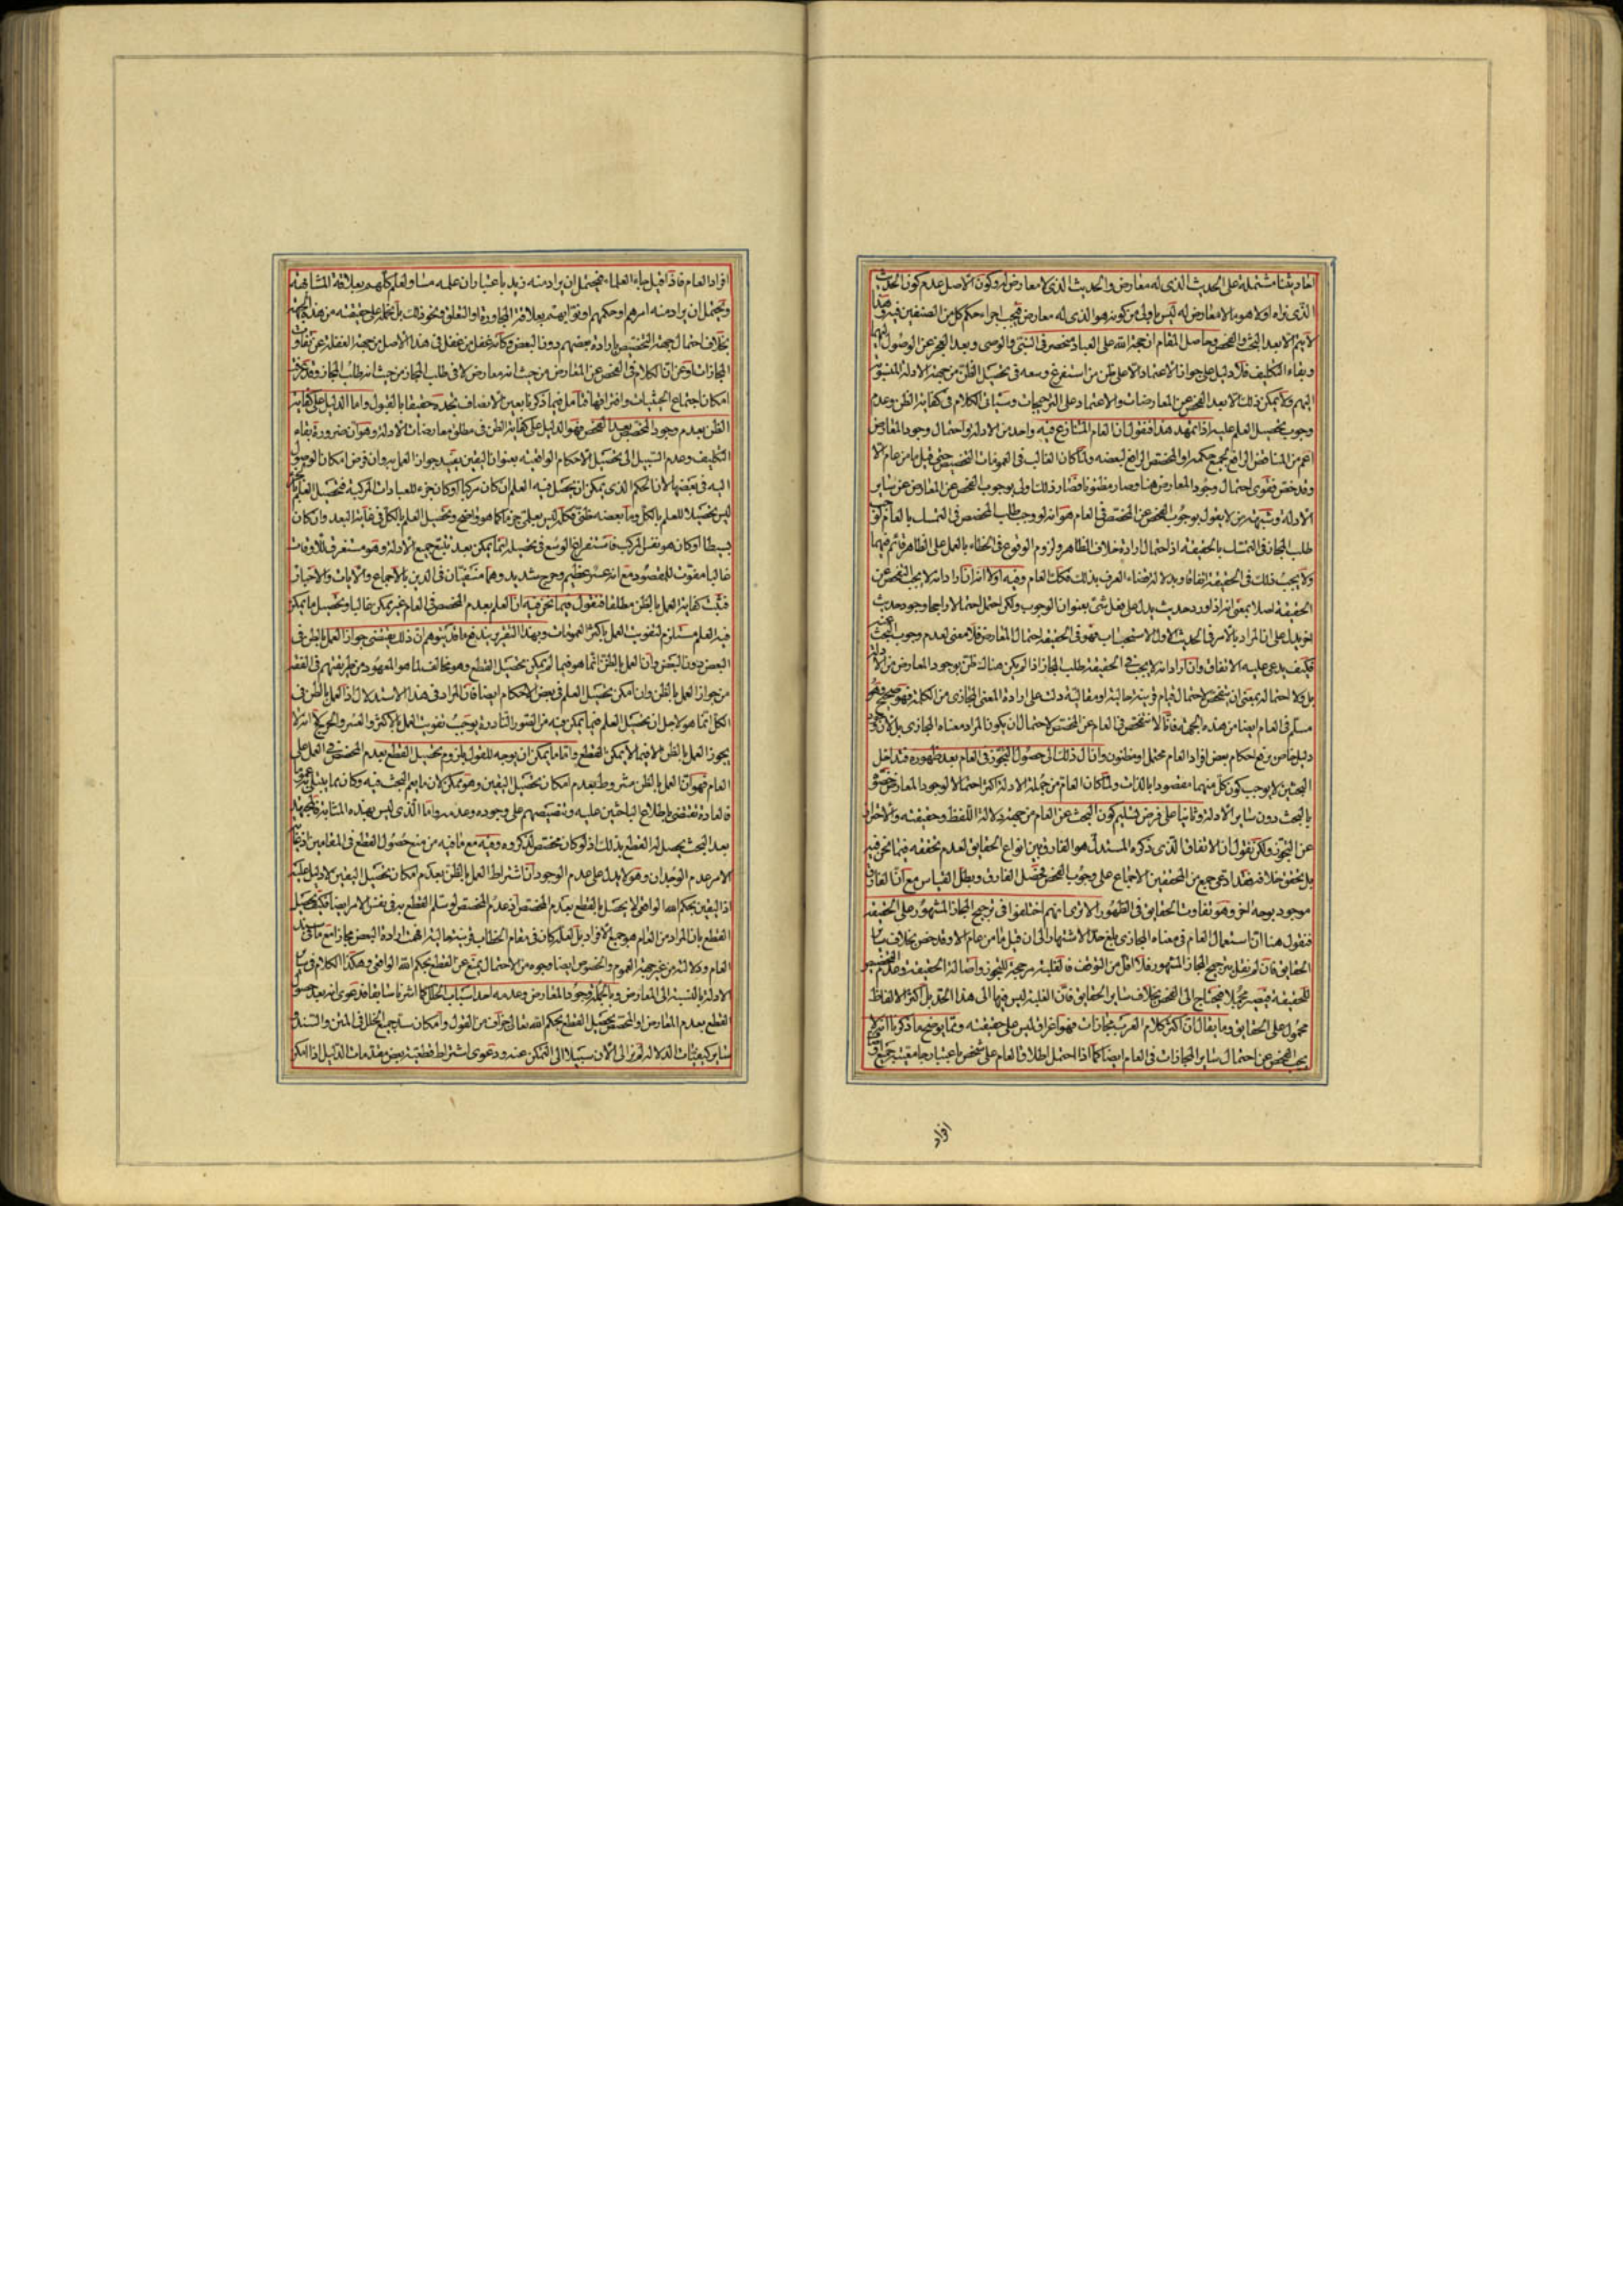 احاديثنا مشتملة على الحديث الذى له معارض والحديث الذى لا معارض له وكون الاصل عدم كون الحديث
الذى نراه اولا هو ما لا معارض له ليس باولى من كونه هو الذى له معارض فيجب اجراء حكم كل من الصنفين فيه وهذا
لا يتم الا بعد البحث والفحص وحاصل المقام ان حجة الله على العباد منحصر فى النبى والوصى وبعد العجز عن الوصول اليهما
وبقاء التكليف فلا دليل على جواز الاعتماد الا على ظن من استفرغ وسعه فى تحصيل الظن من جهة الادلة المنسوبة
اليهم ولا يمكن ذلك الا بعد الفحص عن المعارضات والاعتماد على الترجيحات وسياتى الكلام فى كفاية الظن وعدم
وجوب تحصيل العلم عليه اذا تمهد هذا فنقول ان العام المتنازع فيه واحد من الادلة واحتمال وجود المعارض
اعم من المناقض الرافع لجميع حكمه او المخصص الرافع لبعضه ولما كان الغالب فى العمومات التخصيص حتى قيل ما من عام الا
وقد خص فقوى احتمال وجود المعارض هنا وصار مظنونا فصار ذلك اولى بوجوب الفحص عن المعارض عن ساير
الادلة وشبهة من لا يقول بوجوب الفحص عن المخصص فى العام هو انه لو وجب طلب المخصص فى التمسك بالعام لوجب
طلب المجاز فى التمسك بالحقيقة اذ احتمال ارادة خلاف الظاهر ولزوم الوقوع فى الخطاء بالعمل على الظاهر قائم فيهما
ولا يجب ذلك فى الحقيقة اتفاقا وبدلالة قضاء العرف بذلك فكذلك العام وفيه اولا انه ان اراد انه لا يجب التفحص عن
الحقيقة اصلا بمعنى انه اذا ورد حديث يدل على فعل شئ بعنوان الوجوب ولكن احتمل احتمالا راجحا وجود حديث
اخر يدل على ان المراد بالامر فى الحديث الاول الاستحباب فهو فى الحقيقة احتمال المعارض فلا معنى لعدم وجوب البحث عنه
فكيف يدعى عليه الاتفاق وان اراد انه لا يجب فى الحقيقة طلب المجاز اذا لم يكن هناك ظن بوجود المعارض من الادلة
بل ولا احتماله بمعنى ان يتفحص لاحتمال قيام قرينة حالية او مقالية دلت على ارادة المعنى المجازى من الكلمة فهو صحيح وهو
مسلم فى العام ايضا من هذه الجهة فانا لا نتفحص فى العام عن المخصص لاحتمال ان يكون المراد معناه المجازى بل لان وجود
دليل خاص يرفع احكام بعض افراد العام محتمل او مظنون وان ال ذلك الى حصول التجوز فى العام بعد ظهوره فتداخل
البحثين لا يوجب كون كل منهما مقصودا بالذات ولما كان العام من جملة الادلة اكثر احتمالا لوجود المعارض خصوه
بالبحث دون ساير الادلة وثانيا على فرض تسليم كون البحث عن العام من جهة دلالة اللفظ وحقيقته والاحتراز
عن التجوز ولكن نقول ان الاتفاق الذى ذكره المستدل هو الفارق بين انواع الحقايق لعدم تحققه فيما نحن فيه
بل تحقق خلافه فقد ادعى جمع من المحققين الاجماع على وجوب الفحص فحصل الفارق وبطل القياس مع ان الفارق
موجود بوجه اخر وهو تفاوت الحقايق فى الظهور الا ترى انهم اختلفوا فى ترجيح المجاز المشهور على الحقيقة
فنقول هنا ان استعمال العام فى معناه المجازى بلغ حد الاشتهار الى ان قيل ما من عام الا وقد خص بخلاف ساير
الحقايق فان لم نقل بترجيح المجاز المشهور فلا اقل من التوقف فالغلبة مرجحة للتجوز واصالة الحقيقة وعدم التخصيص
للحقيقة فيصير مجملا فيحتاج الى الفحص بخلاف ساير الحقايق فان الغلبة ليس فيها الى هذا الحد بل اكثر الالفاظ
محمول على الحقايق وما يقال ان اكثر كلام العرب مجازات فهو اغراق ليس على حقيقته ومما يوضح ما ذكرنا انه لا
يجب الفحص عن احتمال ساير المجازات فى العام ايضا كما اذا احتمل اطلاق العام على شخص باعتبار جامعيته جميع
افراد
افراد العام فاذا قيل جاء العلماء فيحتمل ان يراد منه زيد باعتبار ان علمه مساو لعلم كلهم بعلاقة المشابهة
ويحتمل ان يراد منه امرهم او حكمهم او نوابهم بعلاقة المجاورة او التعلق ونحو ذلك بل نحمله على حقيقته من هذه الجهة
بخلاف احتمال جهة التخصيص وارادة بعضهم دون البعض وكانه غفل من غفل فى هذا الاصل من جهة الغفلة عن تفاوت
المجازات وعن ان الكلام فى الفحص عن المعارض من حيث انه معارض لا فى طلب المجاز من حيث انه طلب المجاز وقد ذكرنا
امكان اجتماع الحيثيات وافتراقها فتامل فيما ذكرنا بعين الانصاف تجده حقيقا بالقبول واما الدليل على كفاية
الظن بعدم وجود المخصص بعد الفحص فهو الدليل على كفاية الظن فى مطلق معارضات الادلة وهو ان ضرورة بقاء
التكليف وعدم السبيل الى تحصيل الاحكام الواقعية بعنوان اليقين يفيد جواز العمل به وان فرض امكان الوصول
اليه فى بعضها لان الحكم الذى يمكن ان يحصل فيه العلم ان كان مركبا او كان جزء للعبادات المركبة فتحصيل العلم بالجزء
ليس تحصيلا للعلم بالكل وما بعضه ظنى فكله ليس بعلمى جزما كما هو واضح وتحصيل العلم بالكل فى غاية البعد وان كان
بسيطا او كان هو نفس المركب فاستفراغ الوسع فى تحصيله انما يمكن بعد تتبع جميع الادلة وهو مستغرق للاوقات
غالبا مفوت للمقصود مع انه عسر عظيم وحرج شديد وهما منفيان فى الدين بالاجماع والايات والاخبار
فثبت كفاية العمل بالظن مطلقا فنقول فيما نحن فيه ان العلم بعدم المخصص فى العام غير ممكن غالبا وتحصيل ما يمكن
فيه العلم مستلزم لتفويت العمل باكثر العمومات وبهذا التقرير يندفع ما قد يتوهم ان ذلك يقتضى جواز العمل بالظن فى
البعض دون البعض وان العمل بالظن انما هو فيما لم يمكن تحصيل القطع وهو مخالف لما هو المعهود من طريقتهم فى الفقه
من جواز العمل بالظن وان امكن تحصيل العلم فى بعض الاحكام ايضا فان المراد فى هذا الاستدلال اذ العمل بالظن فى
الكل انما هو لاجل ان تحصيل العلم فيما يمكن فيه من الصور النادرة يوجب تفويت العمل بالاكثر والعسر والحرج لا انه لا
يجوز العمل بالظن الا فيما لا يمكن القطع واما ما يمكن ان يوجه للقول بلزوم تحصيل القطع بعدم المخصص فى العمل على
العام فهو ان العمل بالظن مشروط بعدم امكان تحصيل اليقين وهو ممكن لان ما يعم البحث فيه وكان مما يبتلى به عموما
فالعادة تقتضى باطلاع الباحثين عليه وتنصيصهم على وجوده وعدمه واما الذى ليس بهذه المثابة فالمجتهد
بعد البحث يحصل له القطع بذلك اذ لو كان مخصص لذكروه وفيه مع ما فيه من منع حصول القطع فى المقامين اذ غاية
الامر عدم الوجدان وهو لا يدل على عدم الوجود ان اشتراط العمل بالظن بعدم امكان تحصيل اليقين لا دليل عليه
اذ اليقين بحكم الله الواقعى لا يحصل بالقطع بعدم المخصص اذ عدم المخصص لو سلم القطع به فى نفس الامر ايضا فكيف يحصل
القطع بان المراد من العام هو جميع الافراد بل لعله كان فى مقام الخطاب قرينة حالية افهمت ارادة البعض مجازا مع ما فى سند
العام ودلالته من غير جهة العموم والخصوص ايضا وجوه من الاحتمال يمنع عن القطع بحكم الله الواقعى وهكذا الكلام فى ساير
الادلة بالنسبة الى المعارض وبالجملة وجود المعارض وعدمه احد اسباب الخلل كما اشرنا سابقا فدعوى انه بعد حصول
القطع بعدم المعارض او المخصص يحصل القطع بحكم الله تعالى جزاف من القول وامكان سد جميع الخلل فى المتن والسند و
ساير كيفيات الدلالة لم نر الى الان سبيلا الى التمكن عنه ودعوى اشتراط قطعية بعض مقدمات الدليل اذا امكن